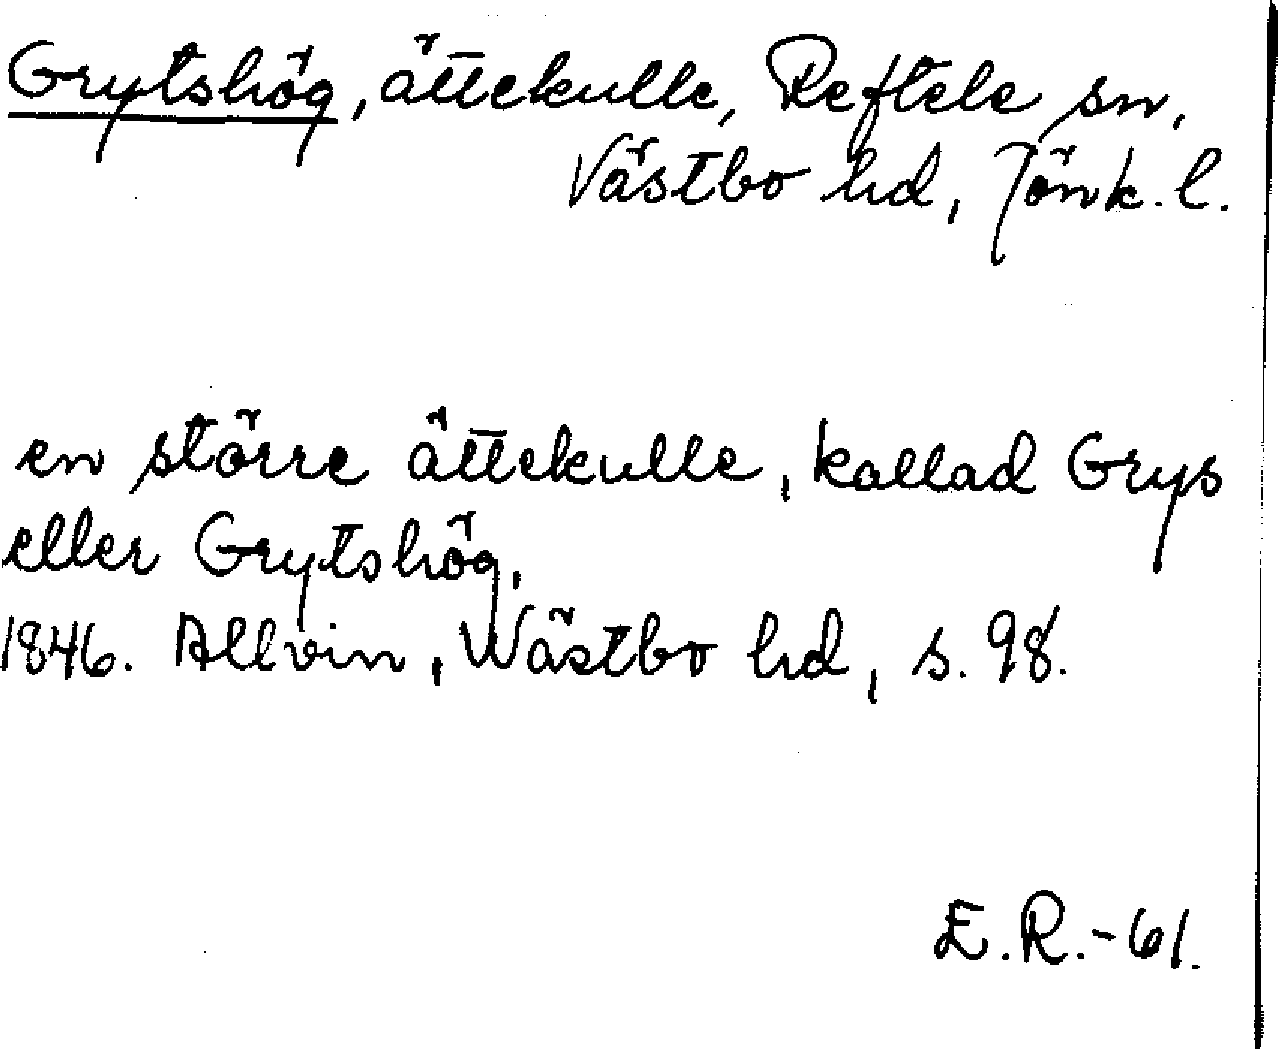 Grytshög, ättekulle, Reftele sn,
Västbo hd, Jönk. l.
en större ättekulle, kallad Grys
eller Grytshög.
1846. Allvin, Wästbo hd, s. 98.
E.R.-61.